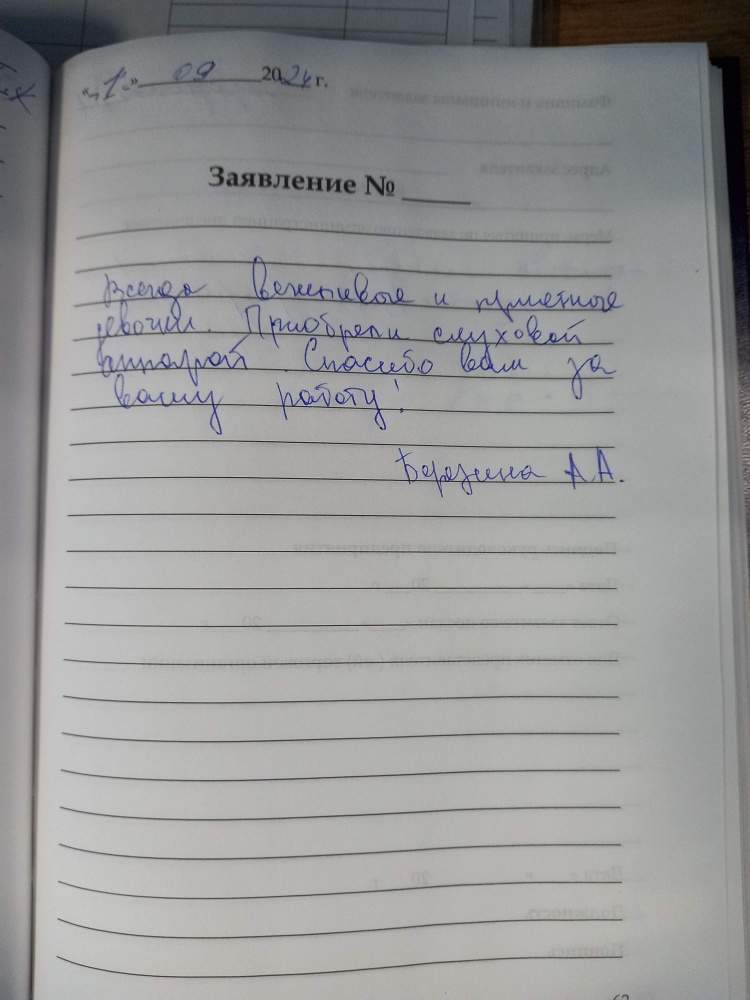 «1» 09 2024 г.
Заявление №
Всегда вежливые и приятные
девочки. Приобрели слуховой
аппарат. Спасибо вам за
вашу работу!
Березина А.А.